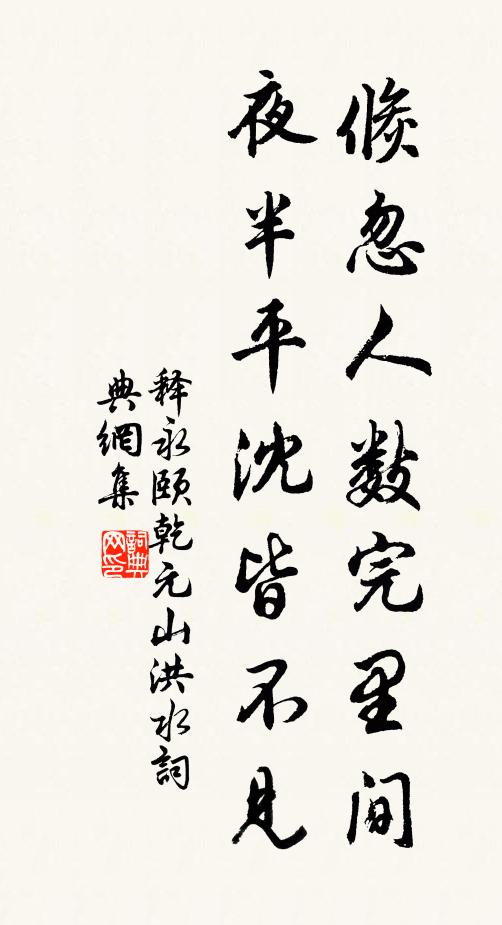 倏忽人数完里间
夜半平沈皆不见
释永颐乾元山洪水詞
典網集
詞典
网印